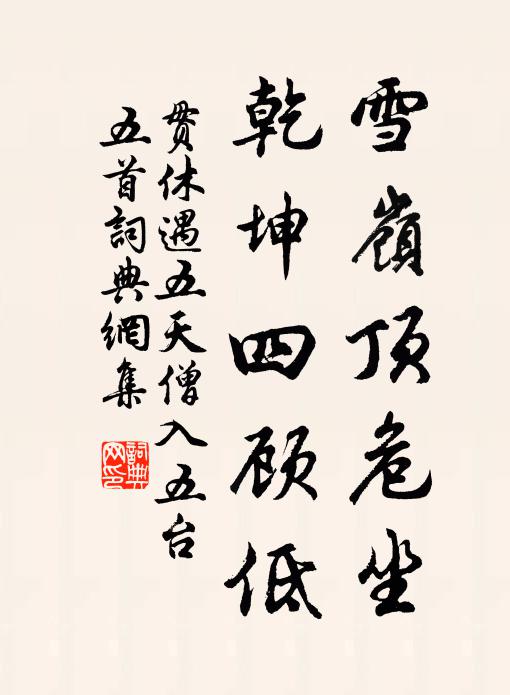 雪嶺頂危坐
乾坤四顾低
贯休遇五天僧入五台
五首詞典網集
詞典网印